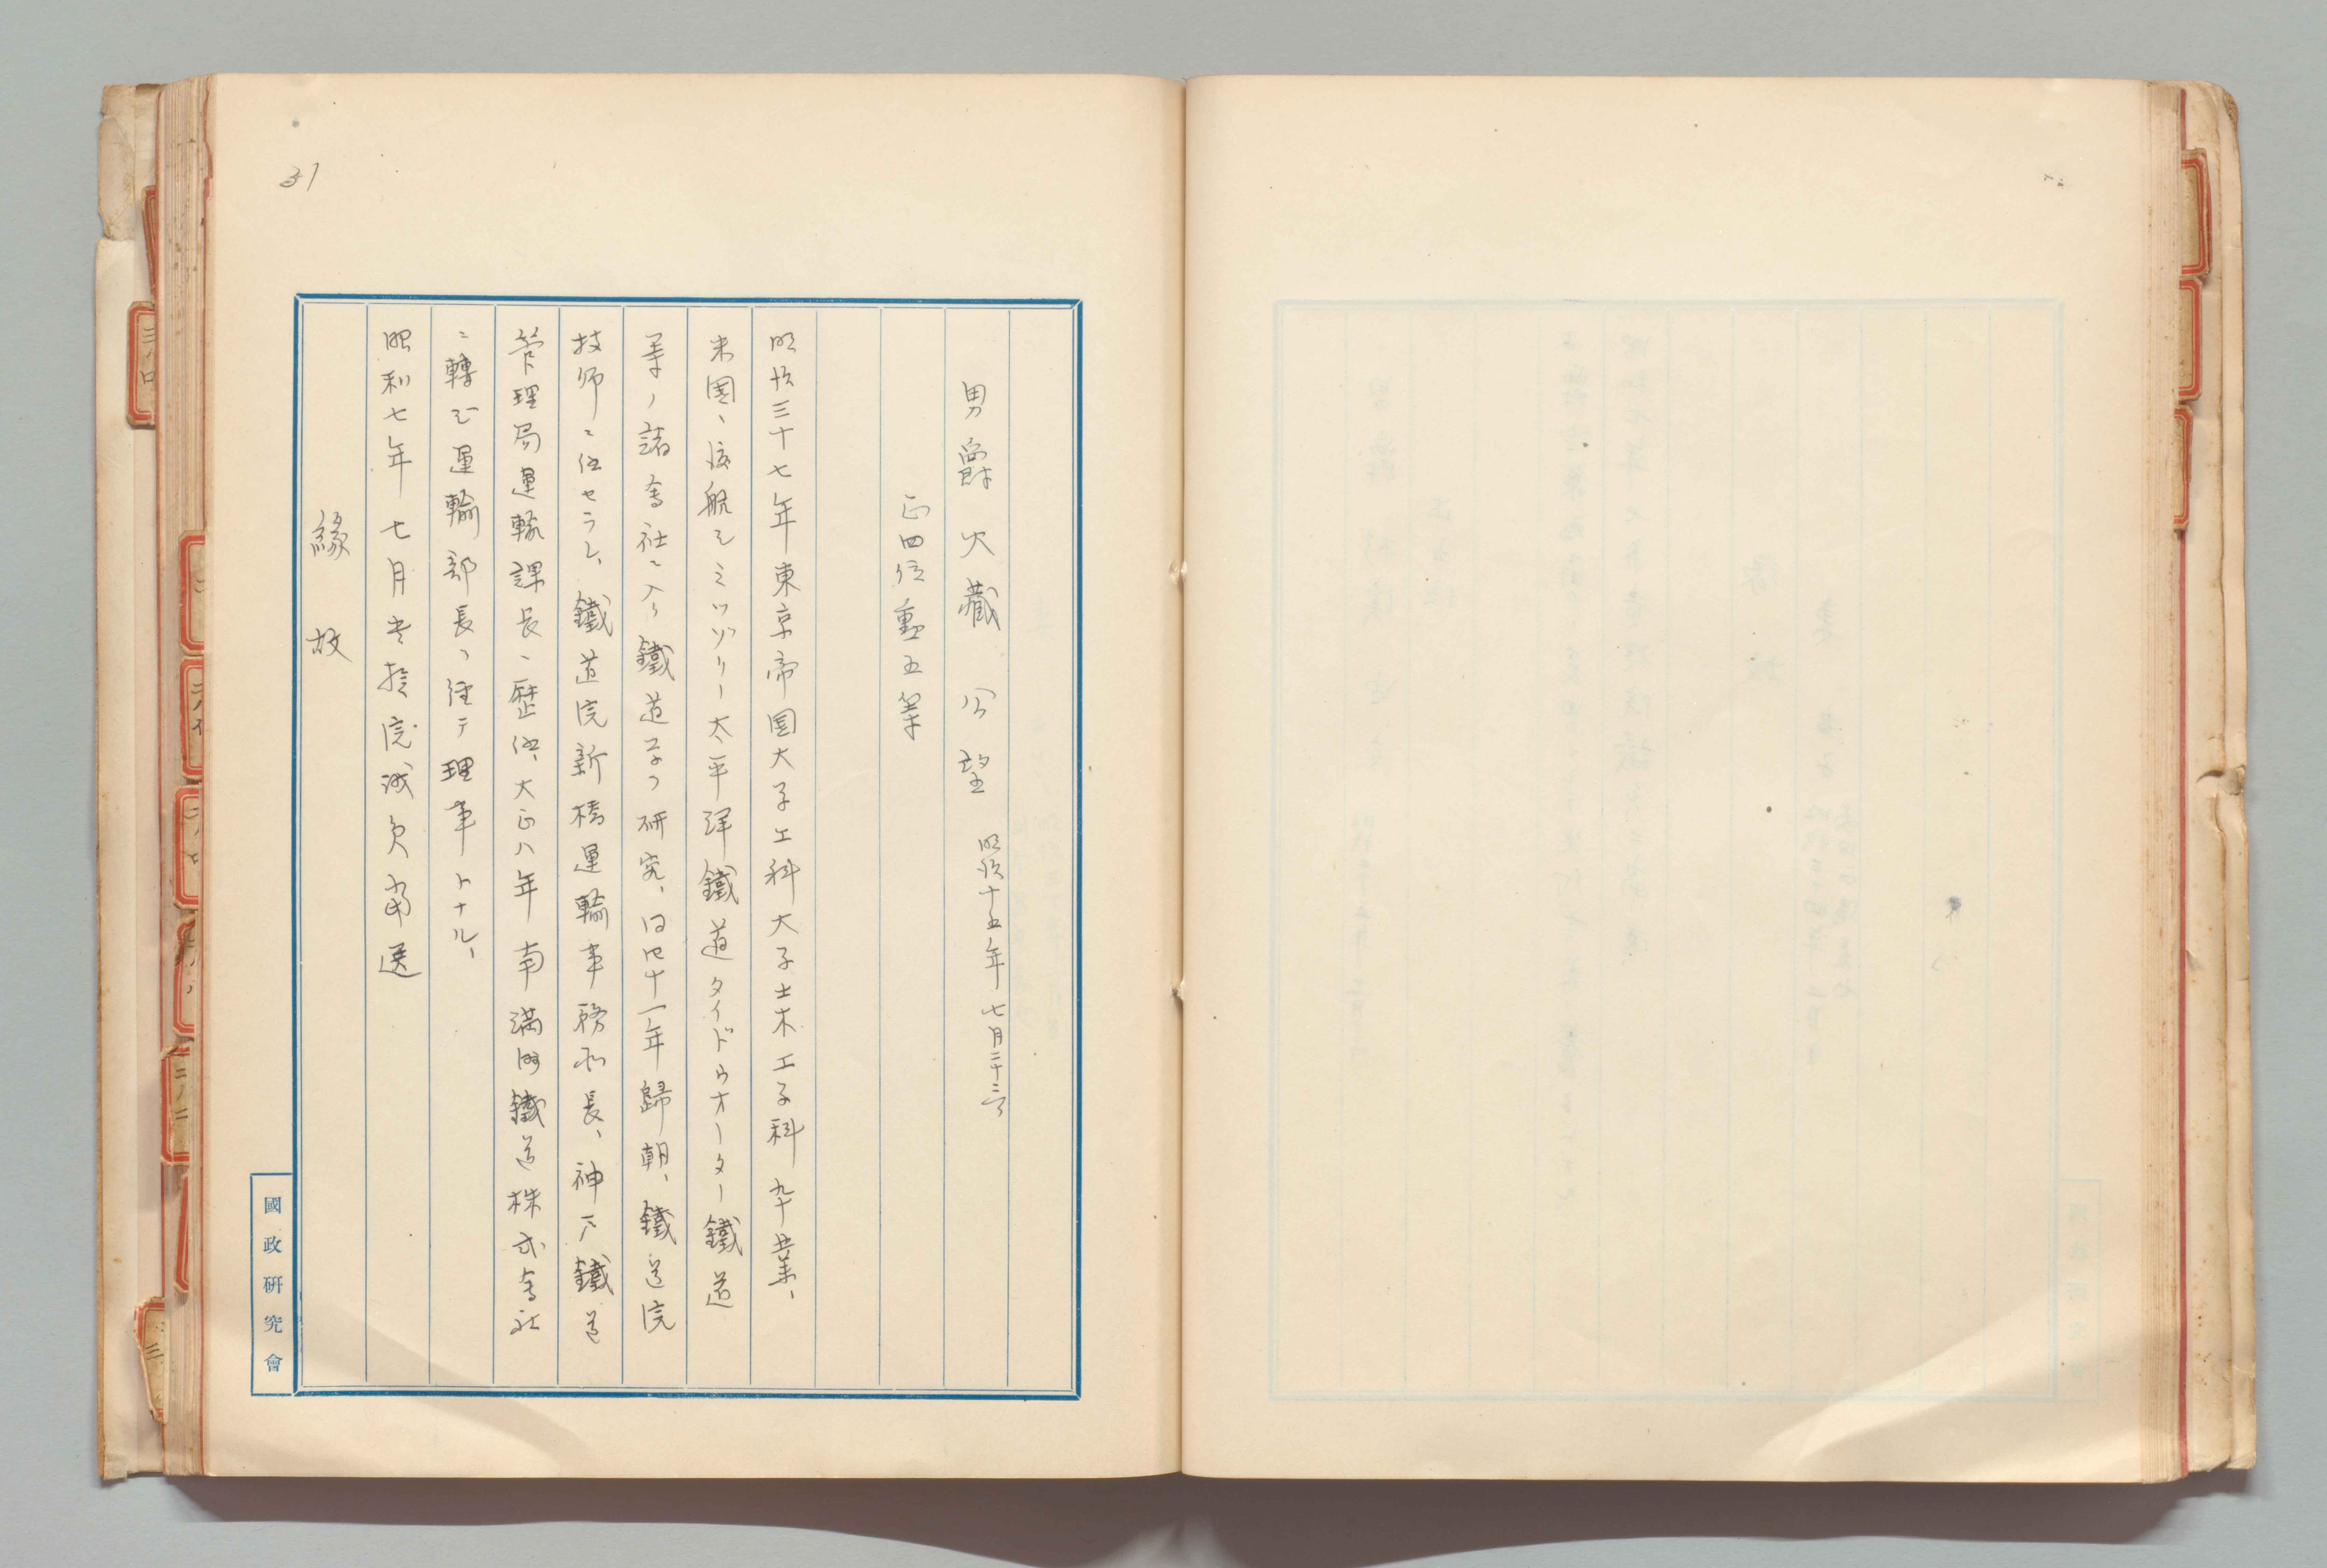 31
男爵 大藏公望 明治十五年七月二十三日
正四位勲五等
明治三十七年東京帝国大学工科大学土木工学科卒業、
米国ニ渡航シミッゾリー太平洋鐵道タイドウオーター鐵道
等ノ諸会社ニ入リ鐵道学ヲ研究、同四十一年歸朝、鐵道院
技師ニ任セラレ、鐵道院新橋運輸事務所長、神戸鐵道
管理局運輸課長ニ歴任、大正八年南満洲鐵道株式会社
ニ轉シ運輸部長ヲ経テ理事トナル、
昭和七年七月貴族院議員当選
縁故
國政研究會
三ノ口